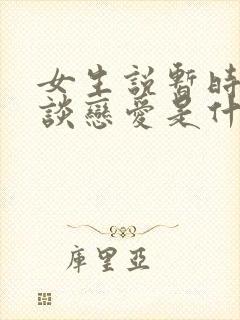 女生說暫時
談戀愛是什
庫里亞